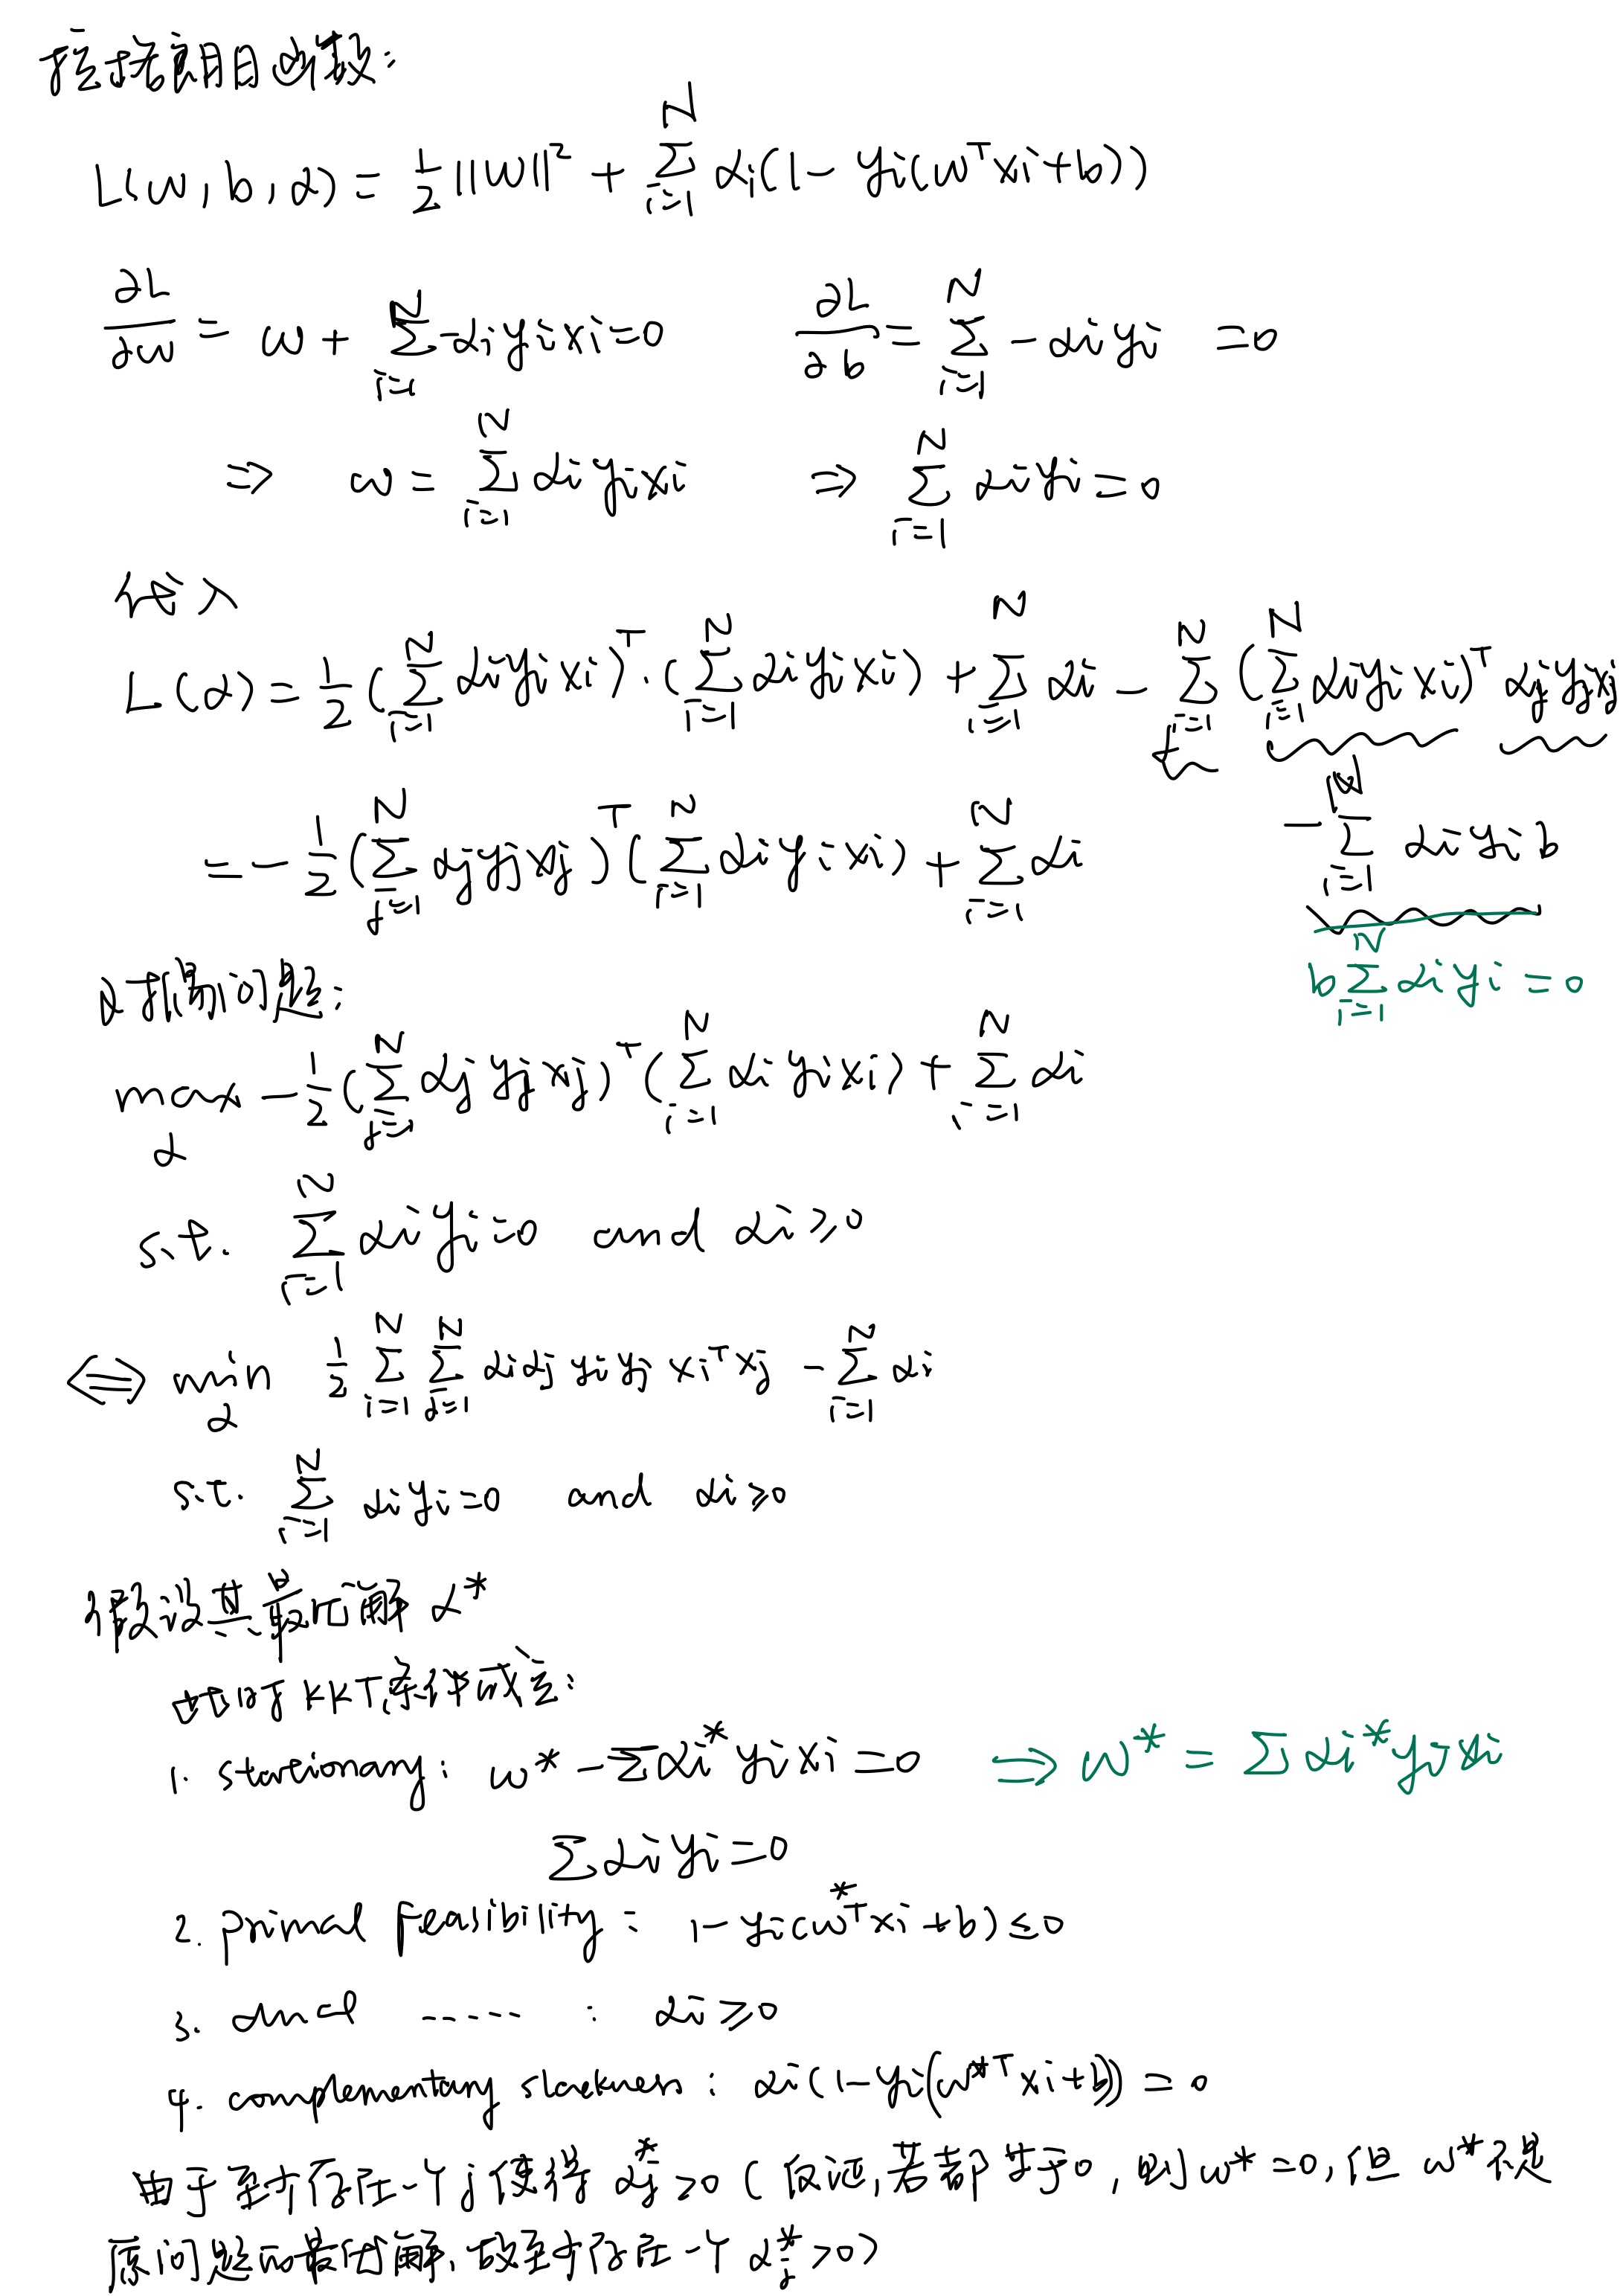 拉格朗日函数:
L(w, b, α) = 1/2 ||w||² + Σ_{i=1}^{N} αi(1 - yi(w^T xi + b))
∂L/∂w = w + Σ_{i=1}^{N} -αi yi xi = 0    ∂L/∂b = Σ_{i=1}^{N} -αi yi = 0
⇒ w = Σ_{i=1}^{N} αi yi xi    ⇒ Σ_{i=1}^{N} αi yi = 0
代入
L(α) = 1/2 (Σ_{i=1}^{N} αi yi xi)^T · (Σ_{i=1}^{N} αi yi xi) + Σ_{i=1}^{N} αi - Σ_{j=1}^{N} (Σ_{i=1}^{N} αi yi xi)^T αj yj xj
- Σ_{i=1}^{N} αi yi b
b Σ_{i=1}^{N} αi yi = 0
= - 1/2 (Σ_{j=1}^{N} αj yj xj)^T (Σ_{i=1}^{N} αi yi xi) + Σ_{i=1}^{N} αi
对偶问题:
max_α - 1/2 (Σ_{j=1}^{N} αj yj xj)^T (Σ_{i=1}^{N} αi yi xi) + Σ_{i=1}^{N} αi
s.t. Σ_{i=1}^{N} αi yi = 0 and αi ≥ 0
⇔ min_α 1/2 Σ_{i=1}^{N} Σ_{j=1}^{N} αi αj yi yj xi^T xj - Σ_{i=1}^{N} αi
s.t. Σ_{i=1}^{N} αi yi = 0 and αi ≥ 0
假设其最优解 α*
此时 KKT条件成立:
1. stationary: w* - Σ αi* yi xi = 0 ⇒ w* = Σ αi* yi xi
Σ αi yi = 0
2. primal feasibility: 1 - yi(w*^T xi + b) ≤ 0
3. dual ----- : αi ≥ 0
4. complementary slackness: αi(1 - yi(w*^T xi + b)) = 0
由于至少存在一个 j 使得 αj* > 0 (反证, 若都等于0, 则 w* = 0, 但 w* 不是
原问题的最优解, 故至少存在一个 αj* > 0)